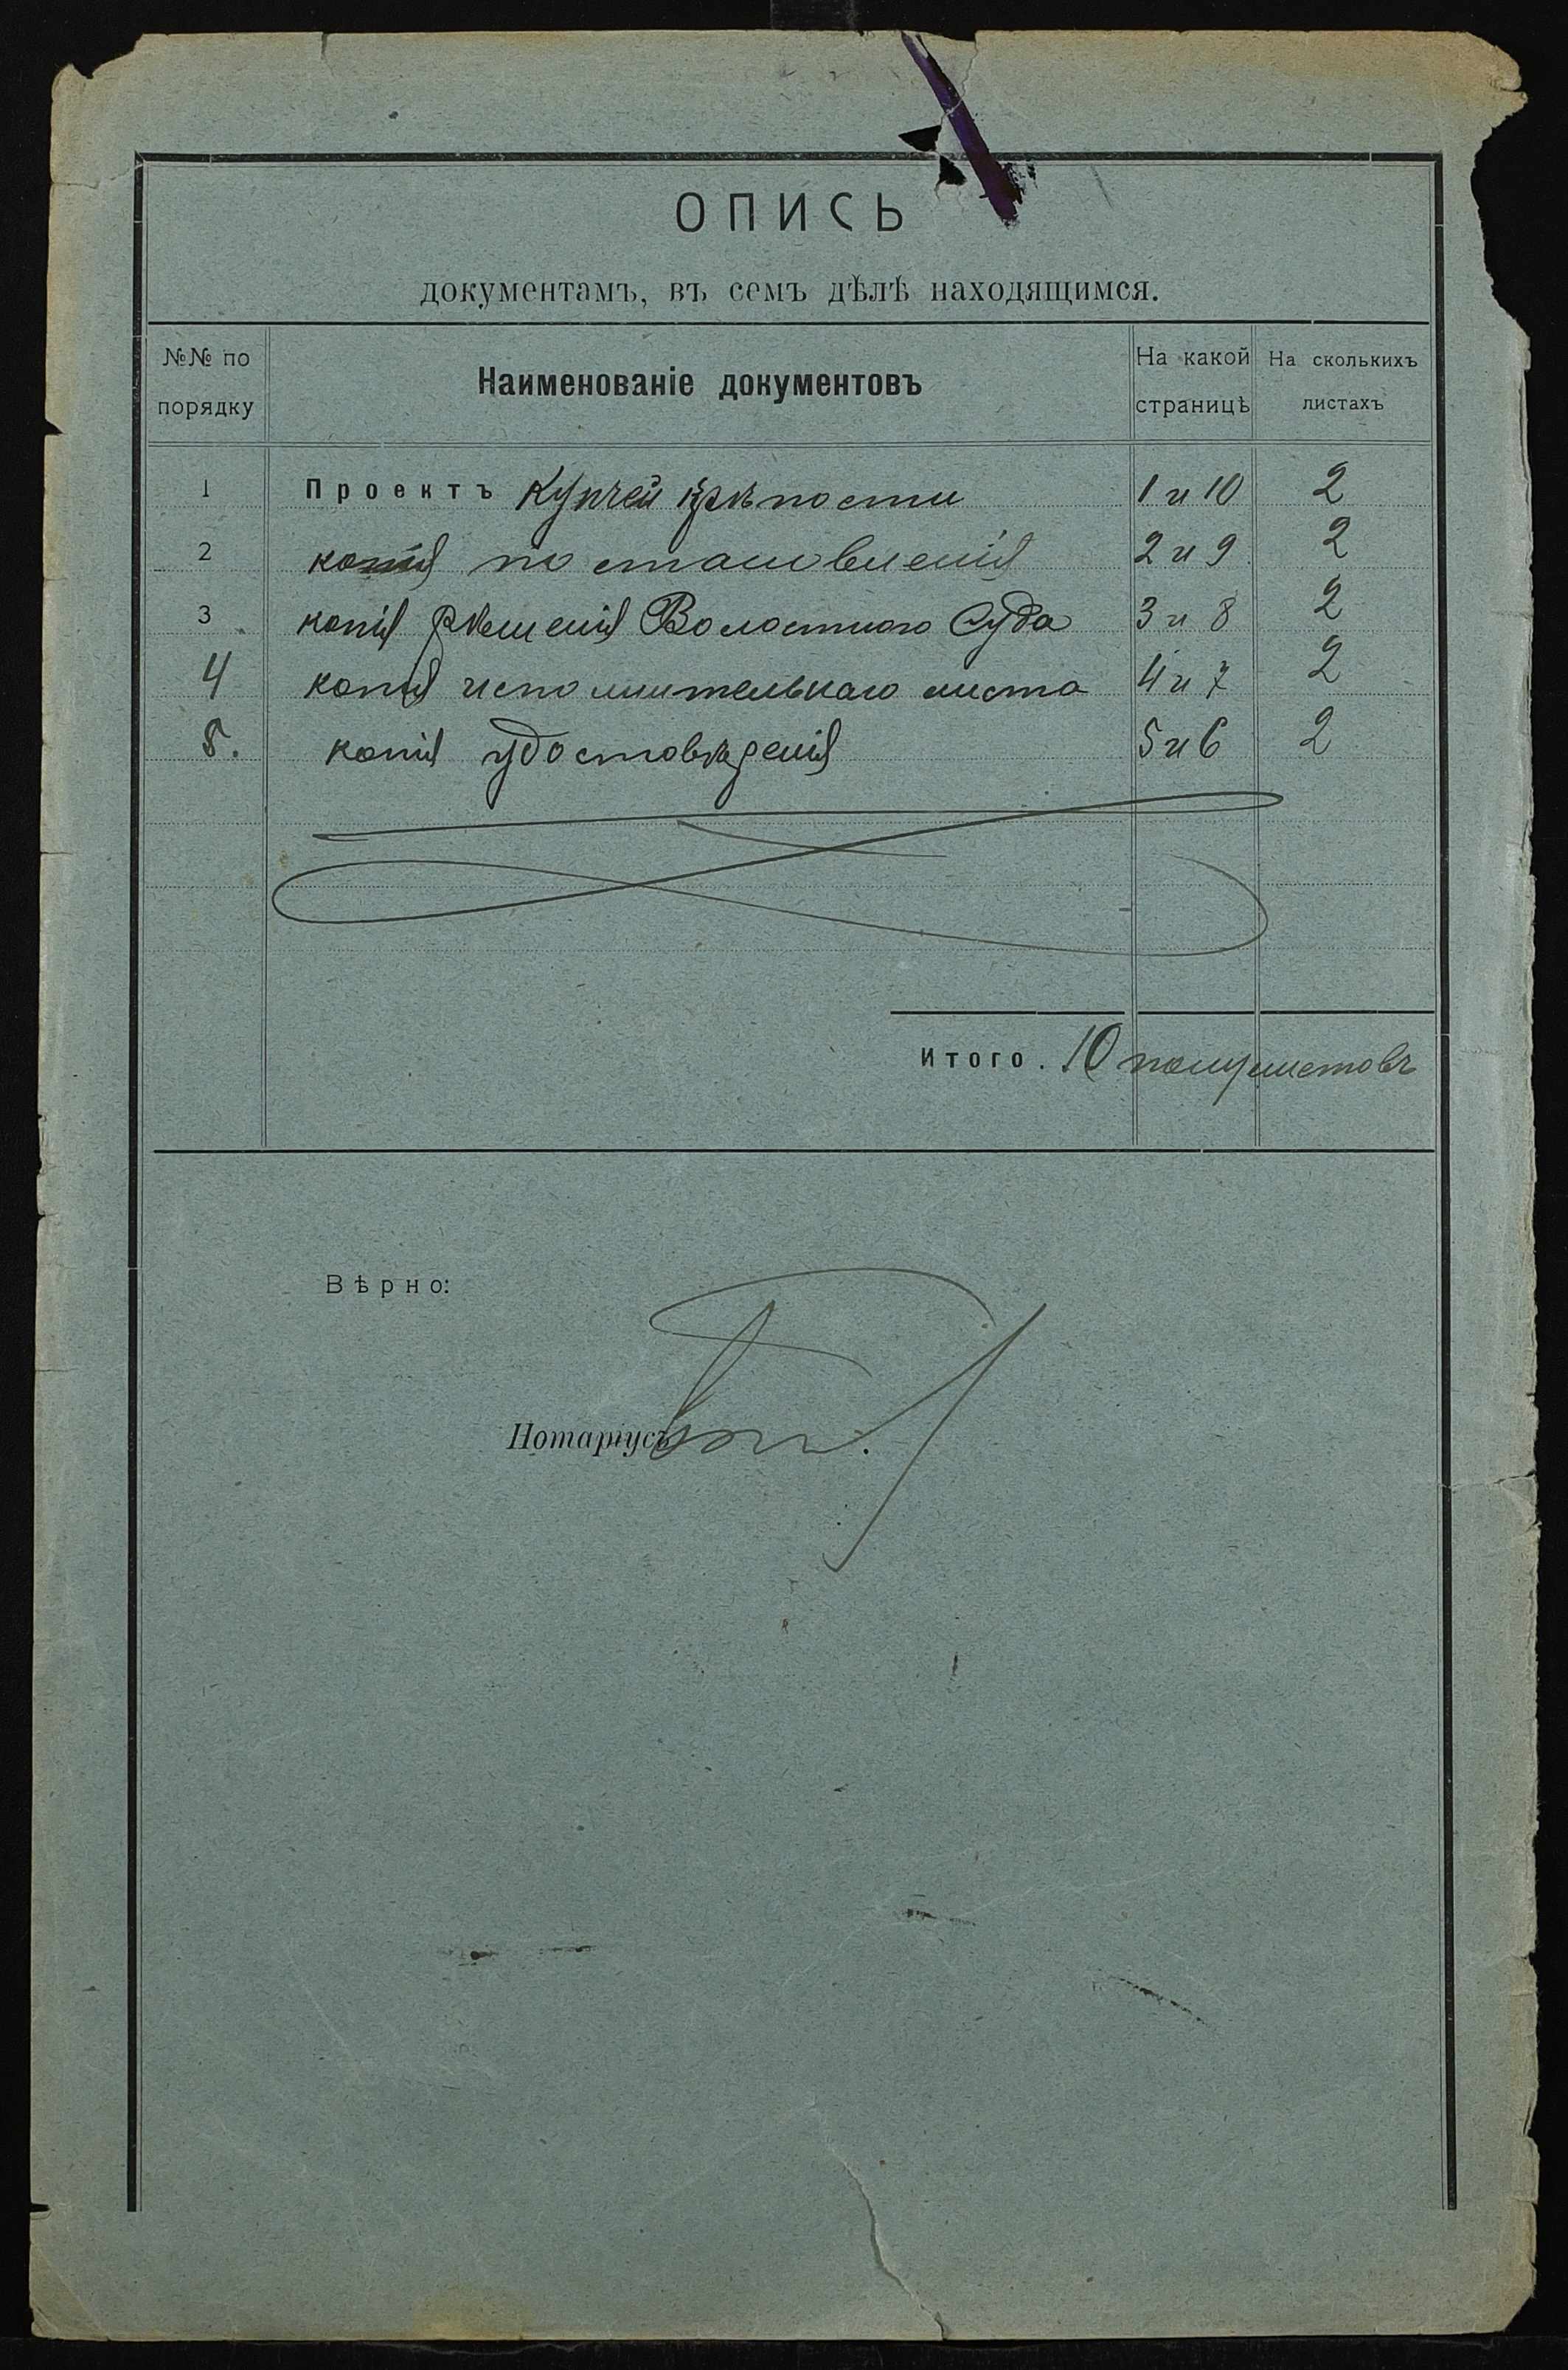 ОПИСЬ
документамъ, въ семъ дѣлѣ находящимся.
№№ по порядку Наименованіе документовъ На какой страницѣ На сколькихъ листахъ
1 Проектъ купчей крѣпости 1 и 10 2
2 копія постановленія 2 и 9 2
3 копія рѣшенія Волостного Суда 3 и 8 2
4 копія исполнительнаго листа 4 и 7 2
5. копія удостовѣренія 5 и 6 2
Итого. 10 полулистовъ
Вѣрно:
Нотаріусъ